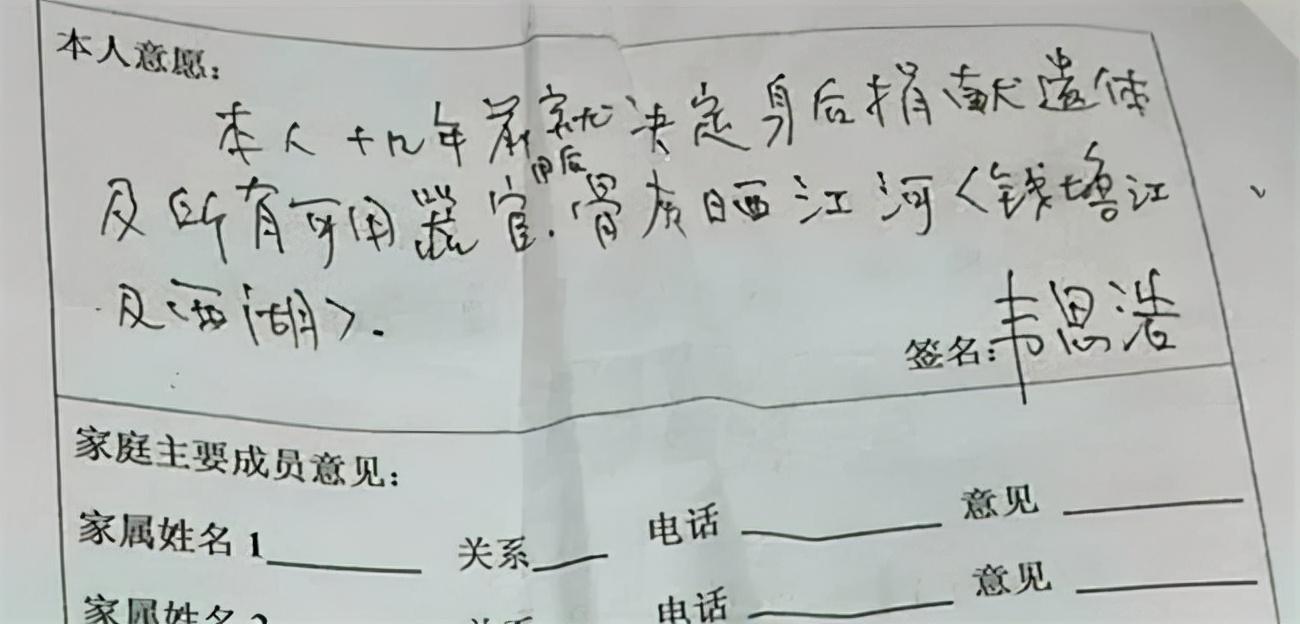 本人意愿：
本人十几年前就决定身后捐献遗体
及所有可用器官.用后骨灰晒江河〈钱塘江
及西湖〉.
签名：韦思浩
家庭主要成员意见：
家属姓名1 关系 电话 意见
家属姓名2 关系 电话 意见